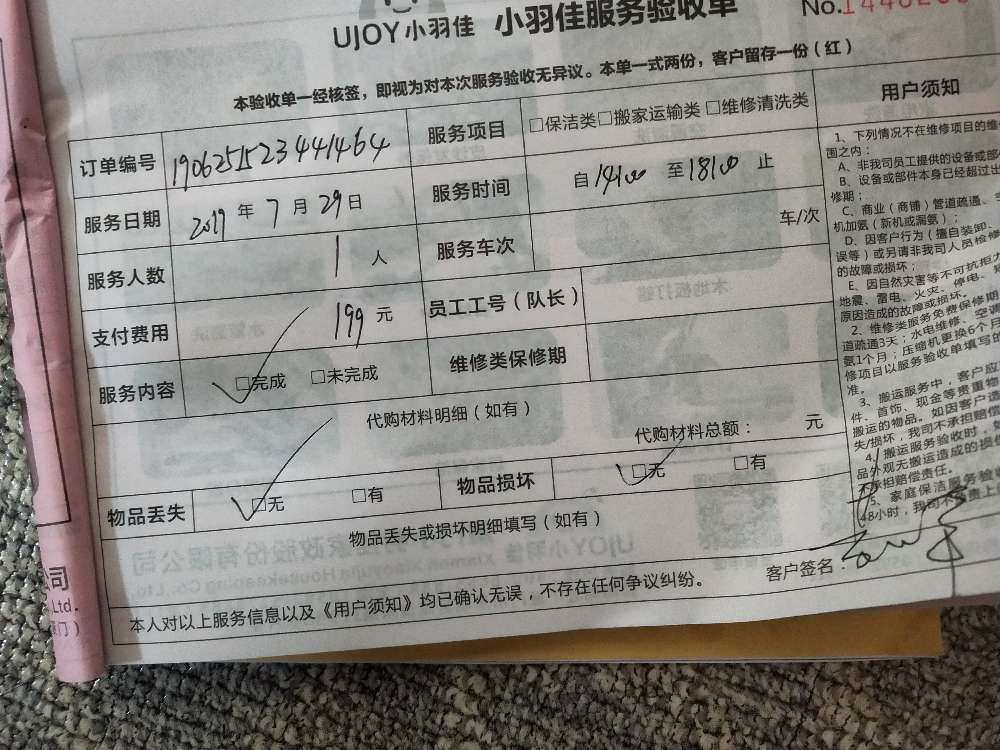 UJOY小羽佳 小羽佳服务验收单 No.
本验收单一经核签，即视为对本次服务验收无异议。本单一式两份，客户留存一份（红）
订单编号 190625152344464 服务项目 □保洁类□搬家运输类 □维修清洗类
服务日期 2019 年 7 月 29 日 服务时间 自 14:00 至 18:00 止
服务人数 1 人 服务车次 车/次
支付费用 199 元 员工工号（队长）
服务内容 □完成 □未完成 维修类保修期
代购材料明细（如有）
代购材料总额： 元
物品丢失 □无 □有 物品损坏 □无 □有
物品丢失或损坏明细填写（如有）
客户签名：
本人对以上服务信息以及《用户须知》均已确认无误，不存在任何争议纠纷。
用户须知
1、下列情况不在维修项目的维
围之内：
A、非我司员工提供的设备或部
B、设备或部件本身已经超过出
修期；
C、商业（商铺）管道疏通、
机加氨（新机或漏氨）；
D、因客户行为（擅自装卸、
误等）或另请非我司人员检修
的故障或损坏；
E、因自然灾害等不可抗拒力
地震、雷电、火灾、停电、
原因造成的故障或损坏。
2、维修类服务免费保修期
道疏通3天；水电维修、空调
氨1个月；压缩机更换6个月
修项目以服务验收单填写的
准。
3、搬运服务中，客户应
件、首饰、现金等贵重物
搬运的物品。如因客户遗
失/损坏，我司不承担赔偿
4、搬运服务验收时，如
品外观无搬运造成的损
不承担赔偿责任。
5、家庭保洁服务验
48小时，我司不
司
Ltd.
门）